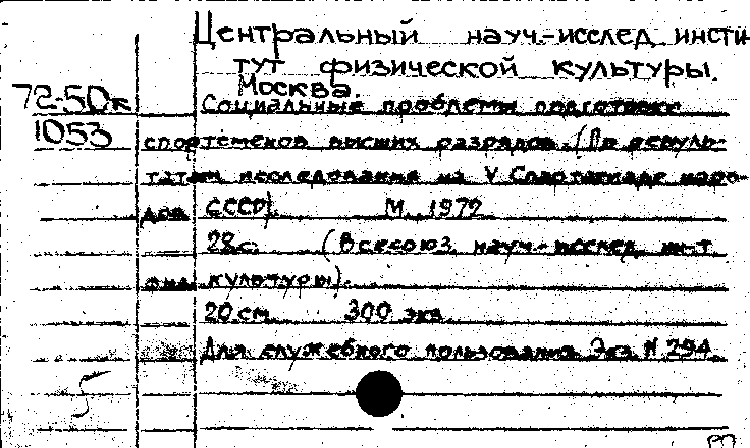 Центральный науч.-исслед. инсти-
тут физической культуры.
Москва.
72-50к Социальные проблемы подготовки
1053 спортсменов высших разрядов. (По резуль-
татам исследования на V Спартакиаде наро-
дов СССР). М., 1972
28 с. (Всесоюз. науч.-исслед. ин-т
физ. культуры).
20 см. 300 экз.
Для служебного пользования Экз N 294
5
РП